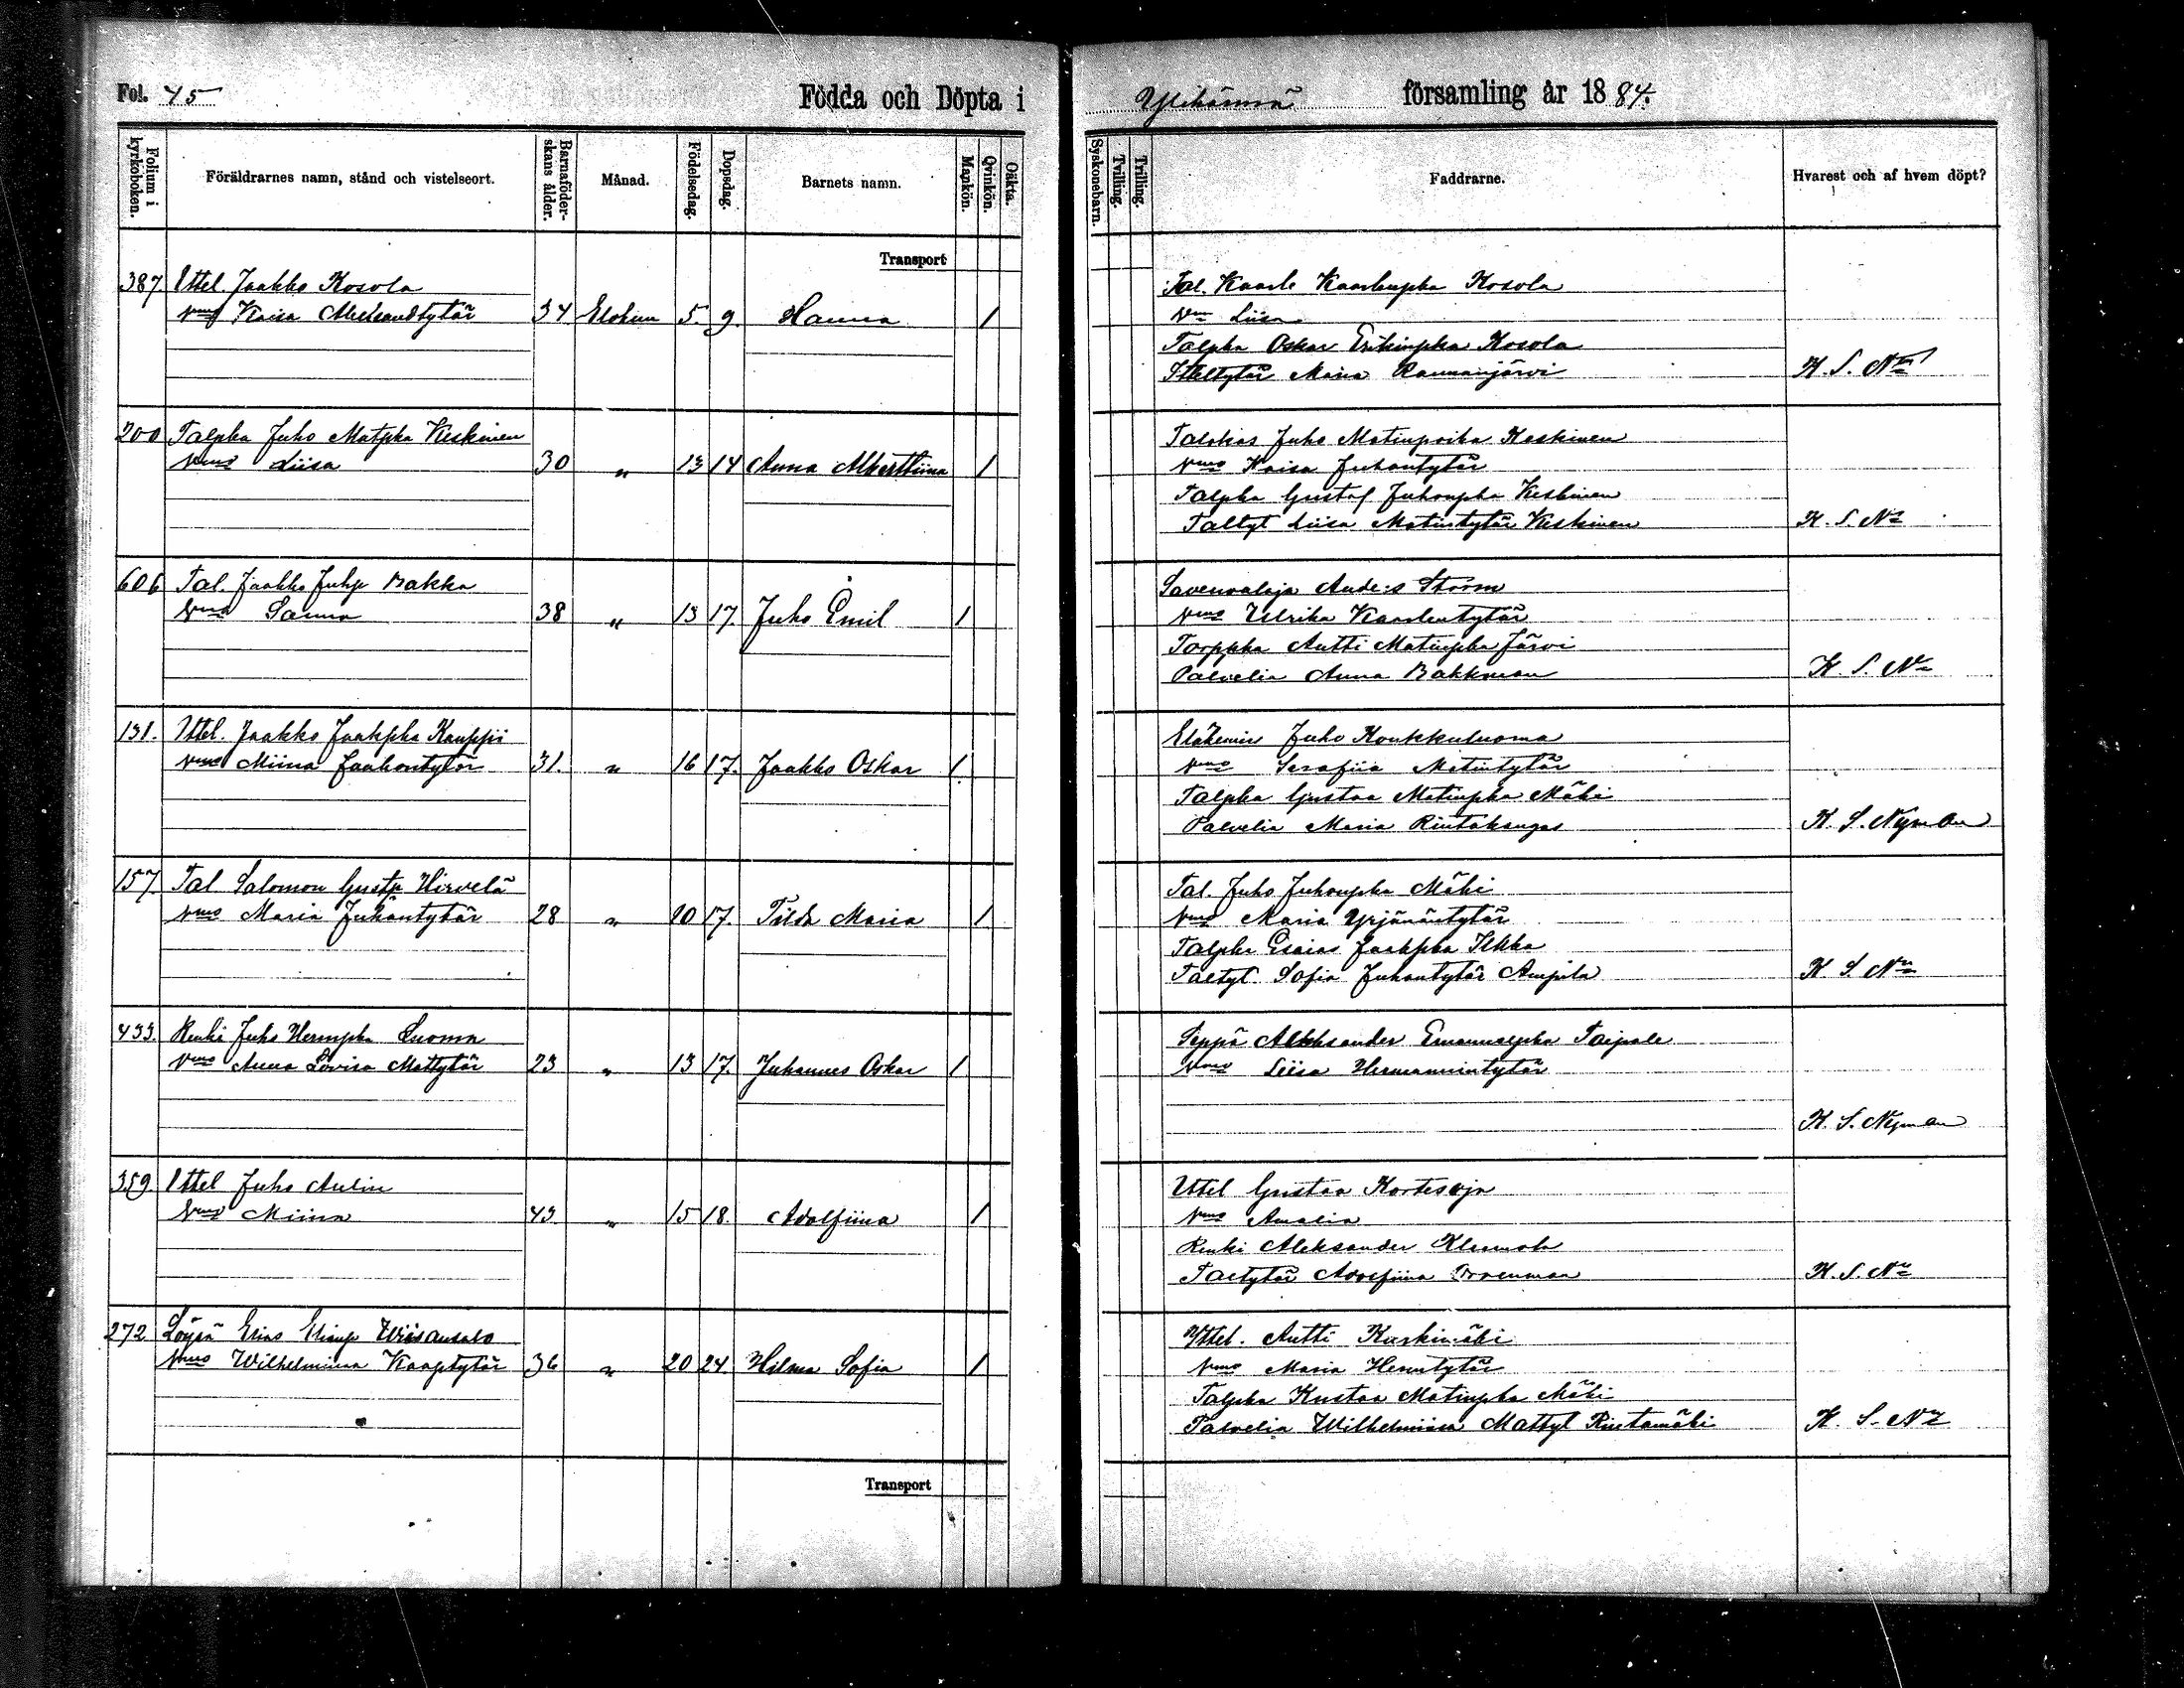 Fol. 45 Födda och Döpta i Ylihärmä församling år 1884.
Folium i kyrkoboken. Föräldrarnes namn, stånd och vistelseort. Barnaföderskans ålder. Månad. Födelsedag. Dopsdag. Barnets namn. Mankön. Qvinkön. Oäkta. Syskonebarn. Tvilling. Trilling. Faddrarne. Hvarest och af hvem döpt?
Transport
387 Ittel. Jaakko Kosola
Tal. Kaarle Kaarlenpka Kosola
vmo Kaisa 34 Elokuu 5. 9. Hanna 1
vmo Liisa
Talpka Oskar Erkinpka Kosola
Maria Rannanjärvi K. S. Nn
200 Talpka Juho Matpka Keskinen
Talokas Juho Matinpoika Keskinen
vmo Liisa 30 „ 13 14 Anna Alberttiina 1
vmo Kaisa Juhontytär
Talpka Gustaf Juhonpka Keskinen
Taltyt Liisa Matintytär Keskinen K. S. Nn
606 Tal. Jaakko Juhp Bakka
Savenvalaja And:s Storm
vmo Sanna 38 „ 13 17. Juho Emil 1
vmo Ulrika Kaarlentytär
Torppka Antti Matinpka Järvi
Palvelia Anna Bakkman K. S. Nn
131. Ittel. Jaakko Jaakpka Kauppi
Juho Koukkuluoma
vmo Miina Jaakontytär 31. „ 16 17. Jaakko Oskar 1.
vmo Serafia Matintytär
Talpka Gustaa Matinpka Mäki
Palvelia Maria Rintakangas K. S. Nyman
157. Tal Salomon Gustp Hirvelä
Tal. Juho Juhonpka Mäki
vmo Maria Juhontytär 28 „ 10 17. Tilda Maria 1
vmo Maria Yrjänäntytär
Talpka Esaias Jaakpka Ilkka
Taltyt. Sofia Juhontytär K. S. Nn
433. Renki Juho Hermpka Luoma
Seppä Alekksander Emanuelpka Taipale
vmo Anna Lovisa Mattytär 23 „ 13 17. Juhannes Oskar 1
vmo Liisa Hermannintytär
K. S. Nyman
359. Ittel Juho Aulin
Ittel Gustaa Kortesoja
vmo Miina 43 „ 15 18. Adolfiina 1
vmo Amalia
Renki Aleksander Klemola
Taltytär Adolfiina K. S. Nn
272 Löysä Elias Eliasp Wiisansalo
Ittel. Antti Karkimäki
vmo Wilhelmiina Kaaptytär 36 „ 20 24. Hilma Sofia 1
vmo Maria Hermtytär
Talpka Kustaa Matinpka Mäki
Palvelia Wilhelmiina Mattyt Rintamäki K. S. Nn
Transport